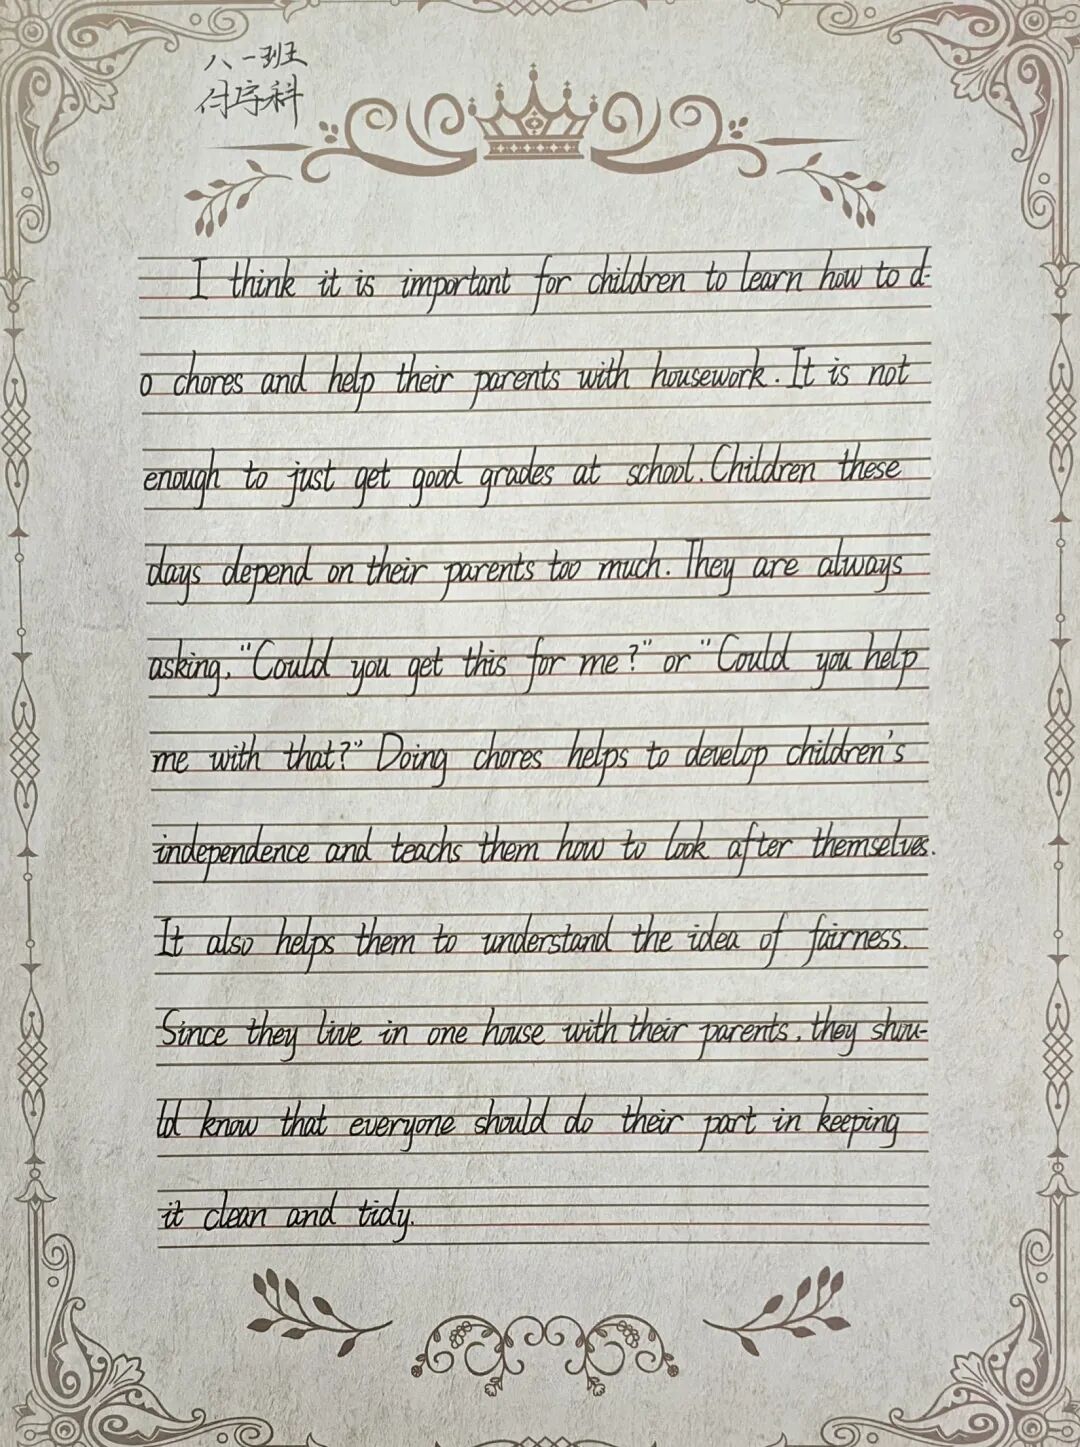 八一班
付序科
I think it is important for children to learn how to d-
o chores and help their parents with housework. It is not
enough to just get good grades at school. Children these
days depend on their parents too much. They are always
asking, "Could you get this for me?" or "Could you help
me with that?" Doing chores helps to develop children's
independence and teachs them how to look after themselves.
It also helps them to understand the idea of fairness.
Since they live in one house with their parents, they shou-
ld know that everyone should do their part in keeping
it clean and tidy.